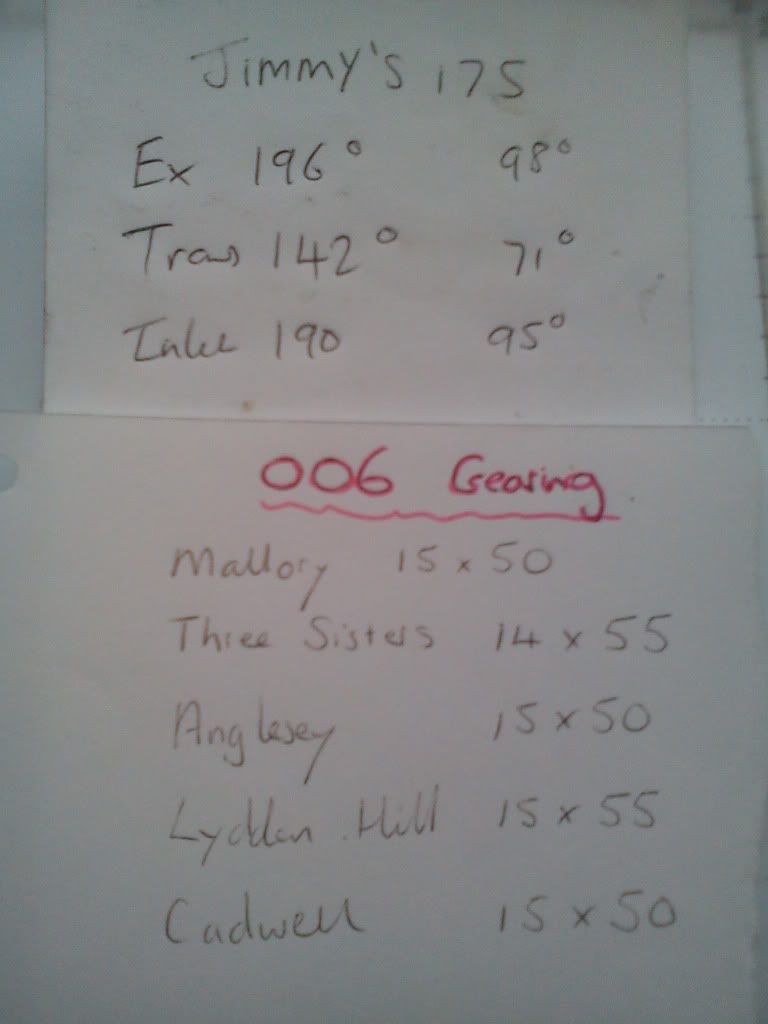 Jimmy's 175
Ex 196° 98°
Trans 142° 71°
Inlet 190 95°
006 Gearing
Mallory 15 x 50
Three Sisters 14 x 55
Anglesey 15 x 50
Lydden Hill 15 x 55
Cadwell 15 x 50